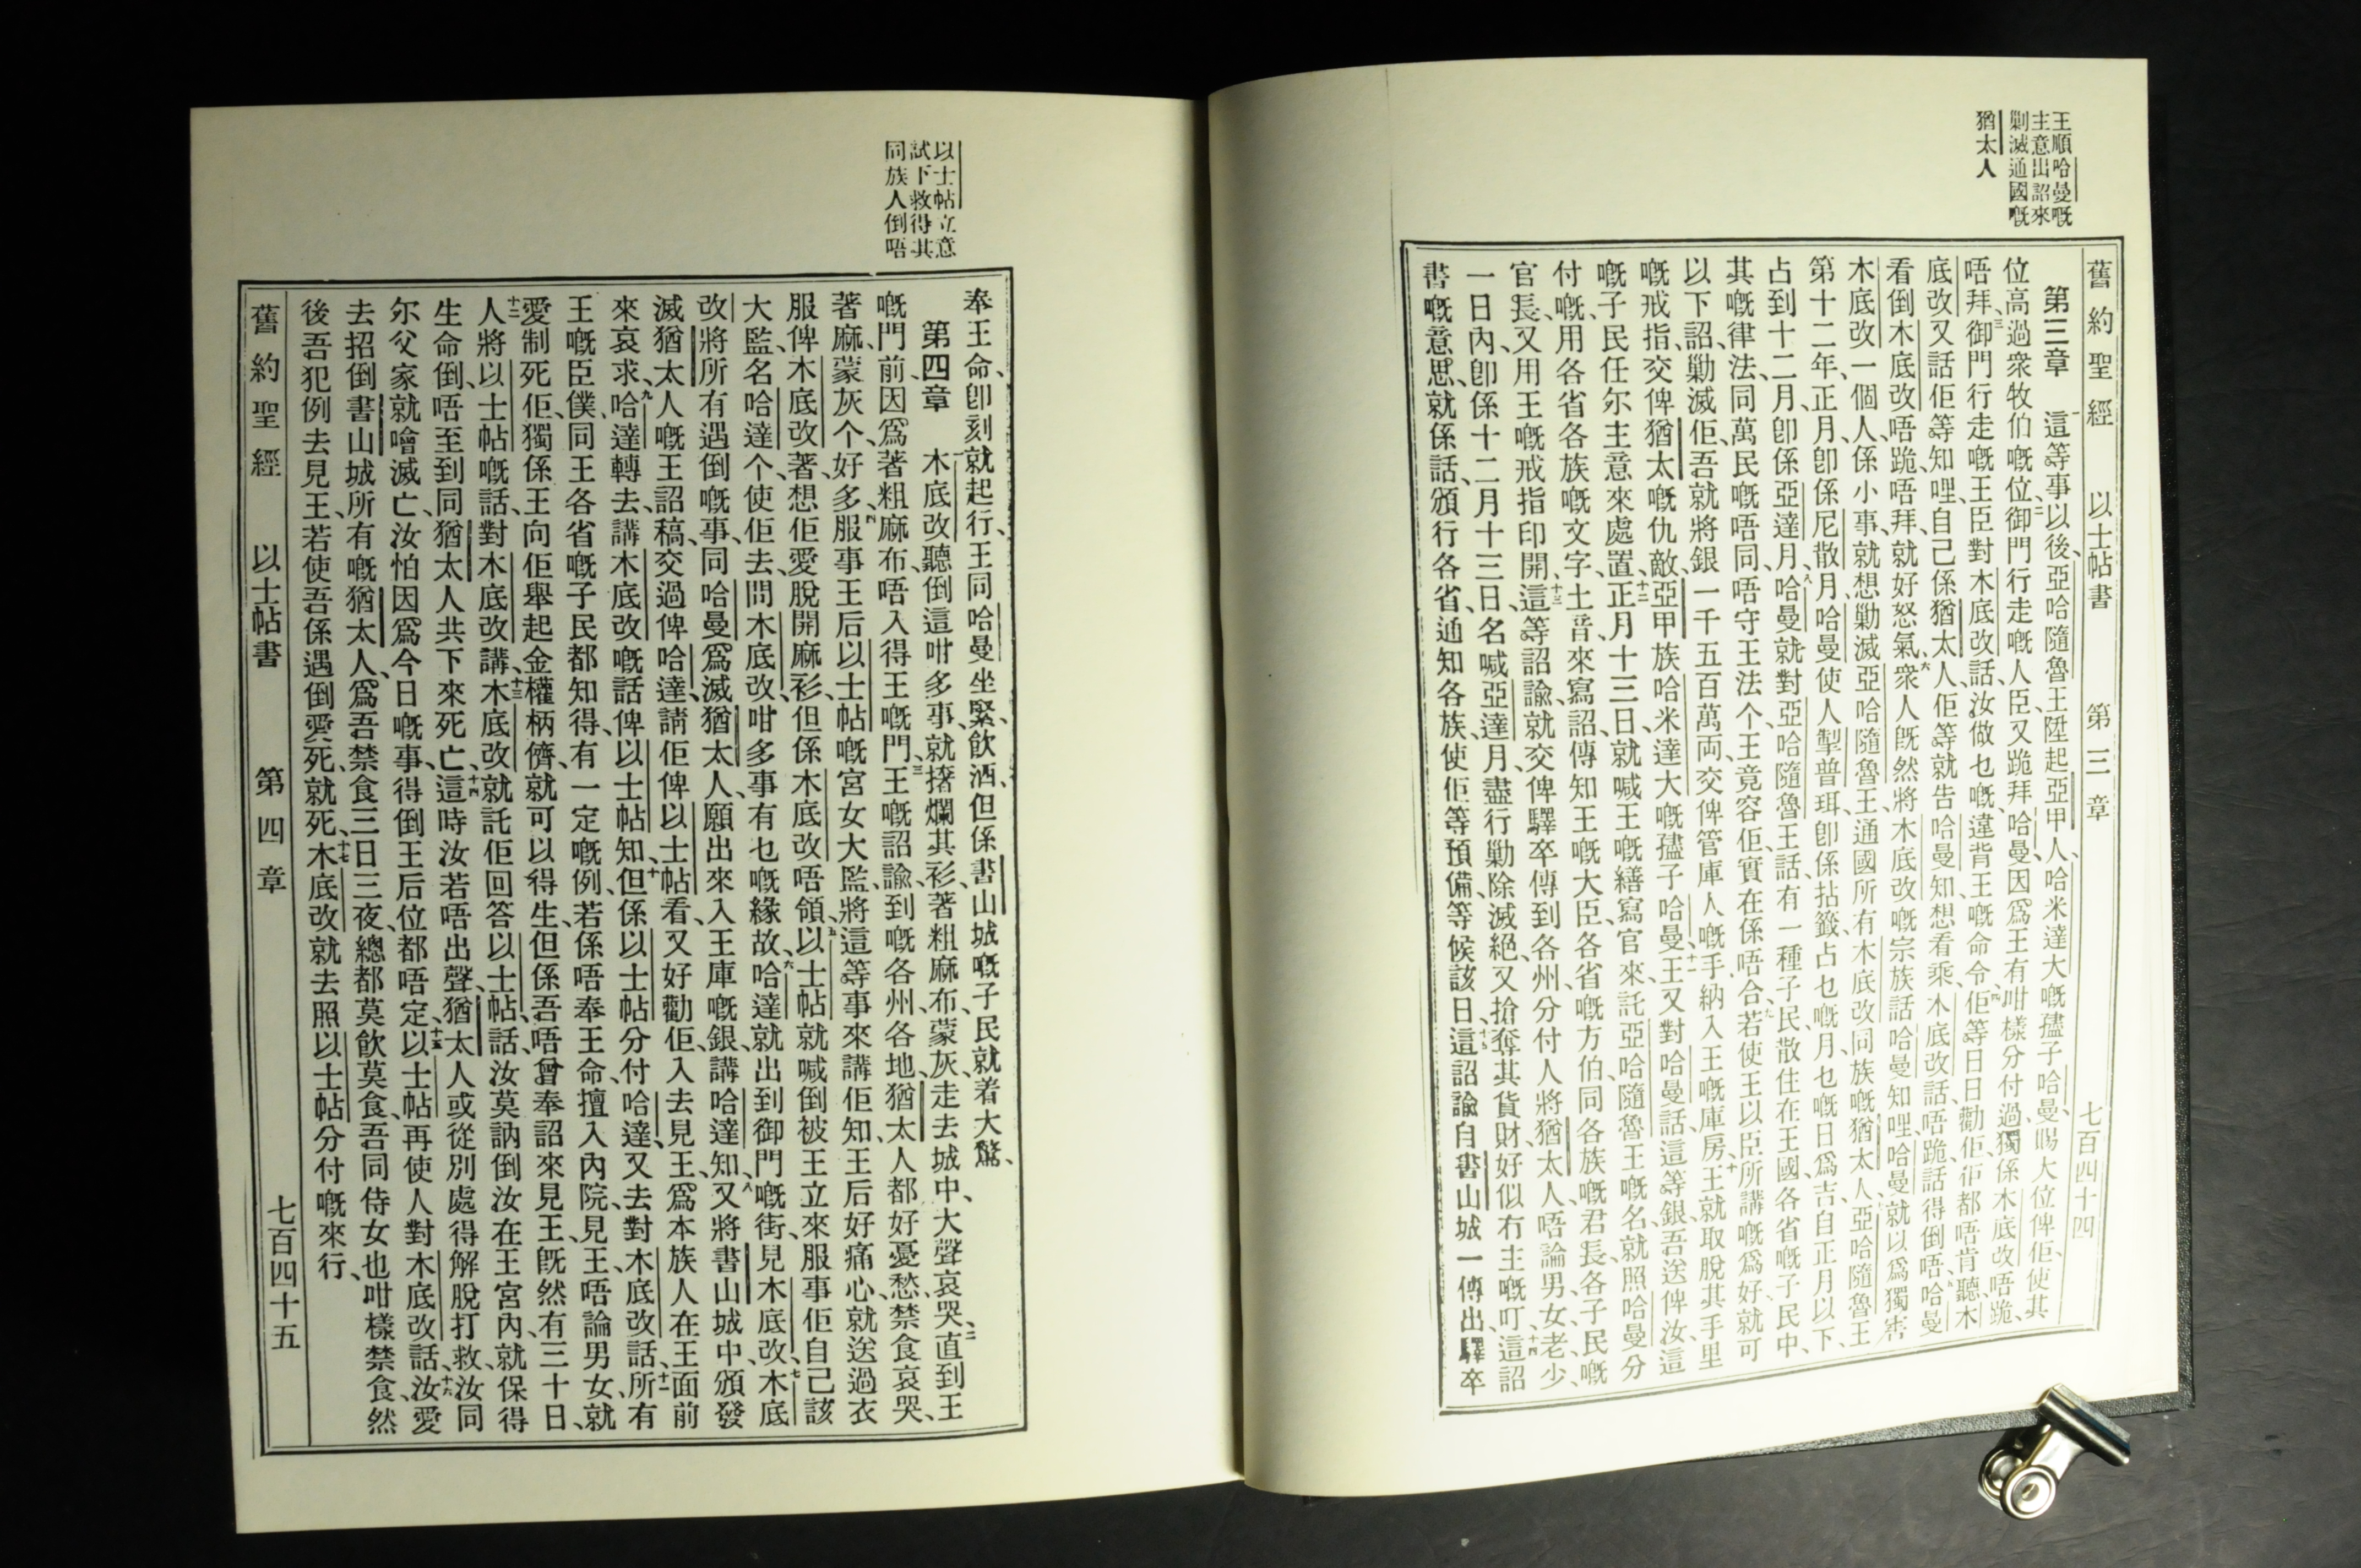 王順哈曼嘅
主意出詔來
剿滅通國嘅
猶太人
舊約聖經 以士帖書 第三章 七百四十四
第三章 這等事以後、亞哈隨魯王陞起亞甲人、哈米達大嘅孻子哈曼、賜大位俾佢、使其
位高過衆牧伯嘅位、二御門行走嘅人臣、又跪拜哈曼、因爲王有咁樣分付過、獨係木底改唔跪、
唔拜、三御門行走嘅王臣對木底改話、汝做乜嘅違背王嘅命令、四佢等日日勸佢、佢都唔肯聽木
底改又話佢等知哩、自己係猶太人、佢等就告哈曼知、想看乘木底改話、唔跪、話得倒唔、五哈曼
看倒木底改唔跪、唔拜、就好怒氣、六衆人既然將木底改嘅宗族話哈曼知哩、哈曼就以爲獨害
木底改一個人、係小事、就想勦滅亞哈隨魯王、通國所有木底改同族嘅猶太人、七亞哈隨魯王
第十二年、正月、卽係尼散月、哈曼使人掣普珥、卽係拈籤、占乜嘅月、乜嘅日爲吉、自正月以下、
占到十二月、卽係亞達月、八哈曼就對亞哈隨魯王話、有一種子民、散住在王國各省嘅子民中、
其嘅律法、同萬民嘅唔同、唔守王法个、王竟容佢、實在係唔合、九若使王以臣所講嘅爲好、就可
以下詔、勦滅佢、吾就將銀一千五百萬両、交俾管庫人嘅手、納入王嘅庫房、十王就取脫其手里
嘅戒指、交俾猶太嘅仇敵、亞甲族哈米達大嘅孻子哈曼、十一王又對哈曼話、這等銀、吾送俾汝、這
嘅子民任尔主意來處置、十二正月十三日、就喊王嘅繕寫官來、託亞哈隨魯王嘅名、就照哈曼分
付嘅、用各省各族嘅文字、土音、來寫詔、傳知王嘅大臣、各省嘅方伯、同各族嘅君長、各子民嘅
官長、又用王嘅戒指印開、十三這等詔諭、就交俾驛卒傳到各州、分付人將猶太人、唔論男女老少、
一日內、卽係十二月十三日、名喊亞達月、盡行勦除滅絕、又搶奪其貨財、好似冇主嘅叮、十四這詔
書嘅意思、就係話、頒行各省、通知各族、使佢等預備、等候該日、十五這詔諭自書山城一傳出、驛卒
以士帖立意
試下救得其
同族人倒唔
奉王命卽刻就起行、王同哈曼坐緊、飲酒、但係書山城嘅子民就着大驚、
第四章 木底改聽倒這咁多事、就撦爛其衫、著粗麻布、蒙灰、走去城中、大聲哀哭、二直到王
嘅門前、因爲著粗麻布、唔入得王嘅門、三王嘅詔諭、到嘅各州各地、猶太人都好憂愁、禁食哀哭、
著麻、蒙灰个、好多、四服事王后以士帖嘅宮女大監、將這等事來講佢知、王后好痛心、就送過衣
服俾木底改著、想佢愛脫開麻衫、但係木底改唔領、五以士帖就喊倒被王立來服事佢自己該
大監、名哈達个、使佢去、問木底改、咁多事有乜嘅緣故、六哈達就出到御門嘅街、見木底改、七木底
改將所有遇倒嘅事、同哈曼爲滅猶太人、願出來入王庫嘅銀、講哈達知、八又將書山城中頒發
滅猶太人嘅王詔稿、交過俾哈達、請佢俾以士帖看、又好勸佢、入去見王、爲本族人在王面前
來哀求、九哈達轉去、講木底改嘅話俾以士帖知、十但係以士帖分付哈達、又去對木底改話、十一所有
王嘅臣僕、同王各省嘅子民都知得、有一定嘅例、若係唔奉王命、擅入內院、見王、唔論男女、就
愛制死佢、獨係王向佢舉起金權柄儕、就可以得生、但係吾唔曾奉詔來見王、旣然有三十日、
十二人將以士帖嘅話、對木底改講、十三木底改就託佢回答以士帖話、汝莫訥倒汝在王宮內、就保得
生命倒、唔至到同猶太人共下來死亡、十四這時汝若唔出聲、猶太人或從別處得解脫打救、汝同
尔父家就噲滅亡、汝怕因爲今日嘅事、得倒王后位都唔定、十五以士帖再使人對木底改話、十六汝愛
去招倒書山城所有嘅猶太人、爲吾禁食三日三夜、總都莫飲莫食、吾同侍女也咁樣禁食、然
後吾犯例去見王、若使吾係遇倒愛死、就死、十七木底改就去照以士帖分付嘅來行、
舊約聖經 以士帖書 第四章 七百四十五